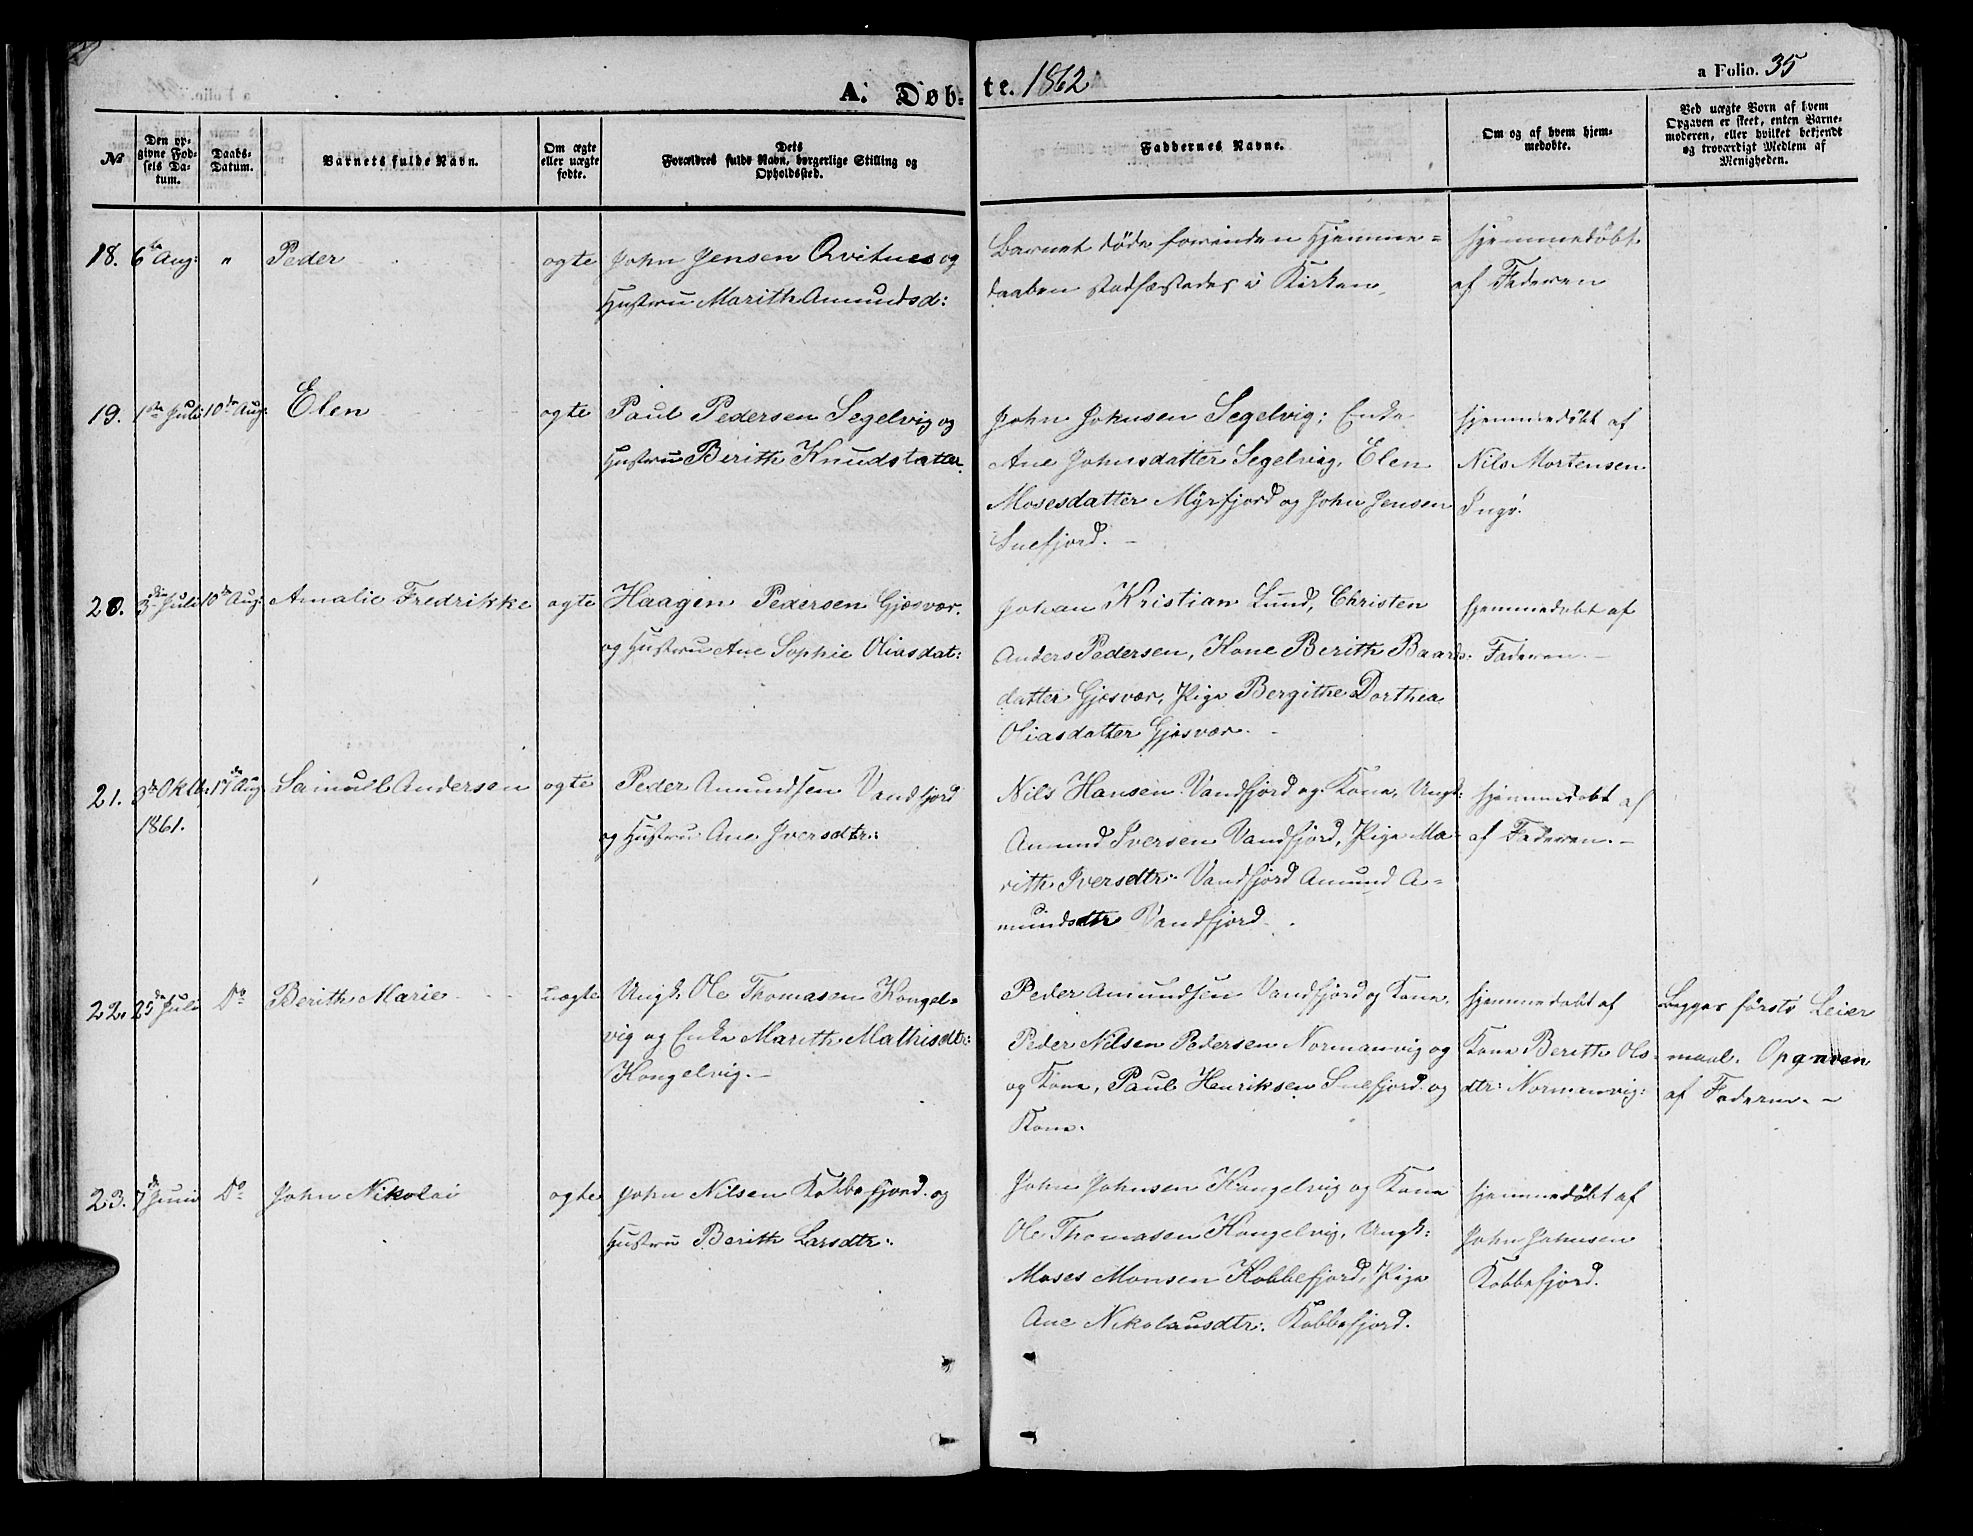 A. Døb-
te. 1862
a Folio. 35
№
Den op-
givne Fød-
sels Da-
tum.
Daabs-
Datum.
Barnets fulde Navn.
Om ægte
eller uægte
fødte.
Dets
Forældres fulde Navn, borgerlige Stilling og
Opholdssted.
Faddernes Navne.
Om og af hvem hjem-
medøbte.
Ved uægte Børn af hvem
Opgaven er skeet, enten Barne-
moderen, eller hvilket bekjendt
og troværdigt Medlem af
Menigheden.
18. 6te Aug: " Peder ægte John Jensen Qvitnes og
Hustru Marith Amundsd:
Barnet døde forinden Hjemme-
daaben stadfæstedes i Kirken.
Hjemmedøbt
af Faderen
19. 1ste Juli 10de Aug: Elen ægte Paul Pedersen Segelvig og
Hustru Berith Knudsdatter.
John Johnsen Segelvig; Enke
Ane Johnsdatter Segelvig, Elen
Mosesdatter Myrfjord og John Jensen
Snefjord. -
Hjemmedøbt af
Nils Mortensen
Ingø.
20. 3die Juli 10de Aug: Amalie Fredrikke ægte Haagen Pedersen Gjesvær.
og Hustru Ane Sophie Oliasdat:
Johan Kristian Lund, Christen
Anders Pedersen, Kone Berith Baards-
datter Gjesvær, Pige Bergithe Dorthea
Oliasdatter Gjesvær. -
Hjemmedøbt af
Faderen. -
21. 3de Oktb: 17de Aug: Samuell Andersen ægte Peder Amundsen Vandfjord
1861.
og Hustru Ane Iversdtr:
Nils Hansen Vandfjord og Kone, Ungk:
Amund Iversen Vandfjord, Pige Ma-
rith Iversdtr: Vandfjord Amund A-
mundsdtr Vandfjord.
Hjemmedøbt af
af Faderen. -
22. 25de Juli Do Berith Marie uægte Ungk. Ole Thomasen Kongel-
vig og Enke Marith Mathisdtr:
Kongelvig. -
Peder Amundsen Vandfjord og Kone.
Peder Nilsen Pedersen Normanvig og
og Kone, Paul Henriksen Snefjord og
Kone.
Hjemmedøbt af
Kone Berith Ols-
dtr: Normanvig:
Begges første Leier
maal. Opgaven
af Faderen. -
23. 7de Juni Do John Nikolai ægte John Nilsen Kobbefjord. og
Hustru Berith Larsdtr:
John Johnsen Kongelvig og Kone
Ole Thomasen Kongelvig, Ungk:
Moses Monsen Kobbefjord, Pige
Ane Nikolausdtr: Kobbefjord.
Hjemmedøbt af
John Johnsen
Kobbefjord.